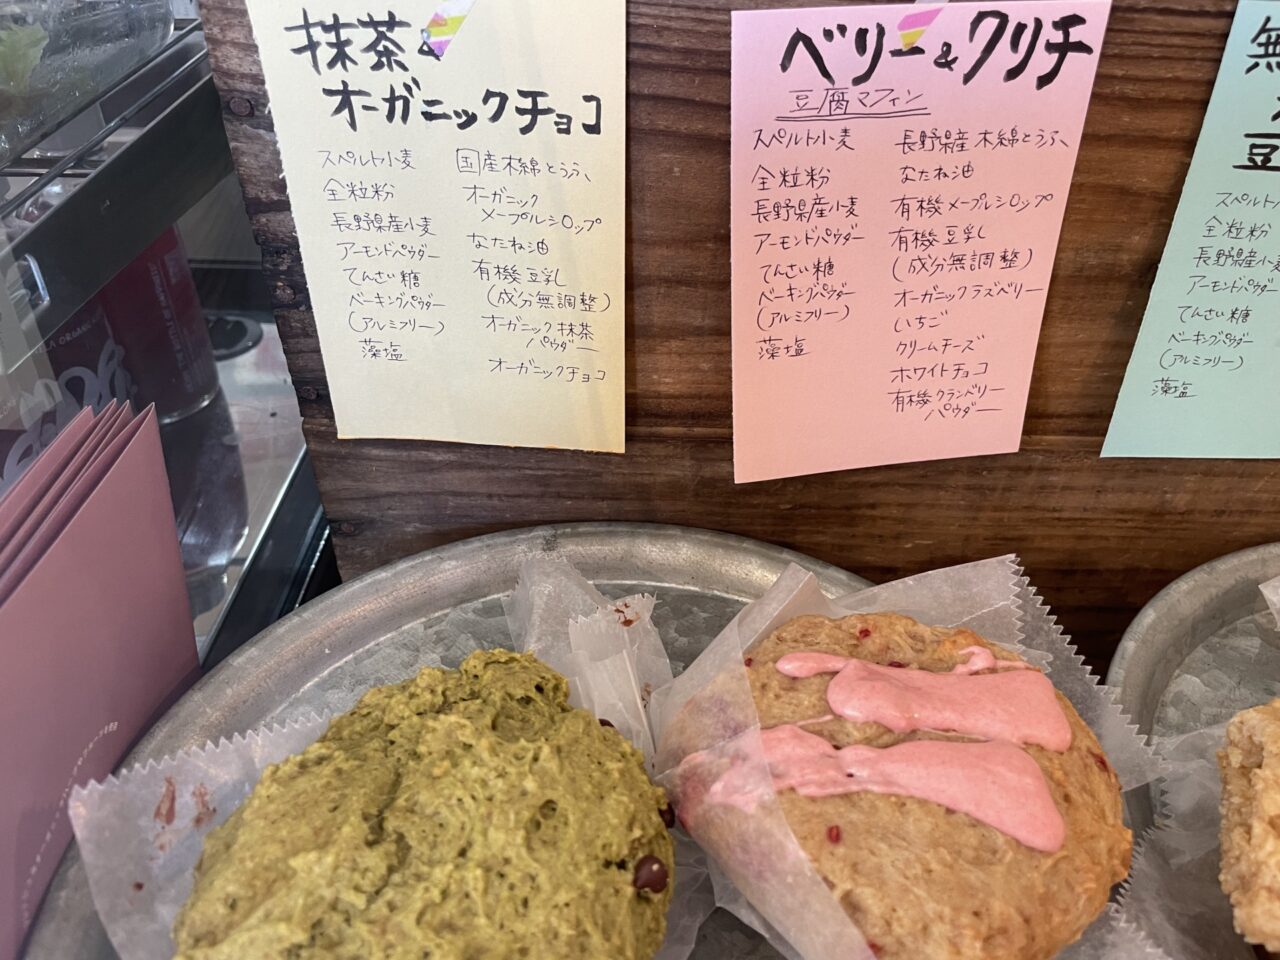 抹茶&
オーガニックチョコ
スペルト小麦
全粒粉
長野県産小麦
アーモンドパウダー
てんさい糖
ベーキングパウダー
(アルミフリー)
藻塩
国産木綿とうふ、
オーガニック
メープルシロップ
なたね油
有機豆乳
(成分無調整)
オーガニック抹茶
パウダー
オーガニックチョコ
ベリー&クリチ
豆腐マフィン
スペルト小麦
全粒粉
長野県産小麦
アーモンドパウダー
てんさい糖
ベーキングパウダー
(アルミフリー)
藻塩
長野県産木綿とうふ、
なたね油
有機メープルシロップ
有機豆乳
(成分無調整)
オーガニックラズベリー
いちご
クリームチーズ
ホワイトチョコ
有機クランベリー
パウダー
無
豆
スペルト
全粒粉
長野県産小麦
アーモンドパウダー
てんさい糖
ベーキングパウダー
(アルミフリー)
藻塩